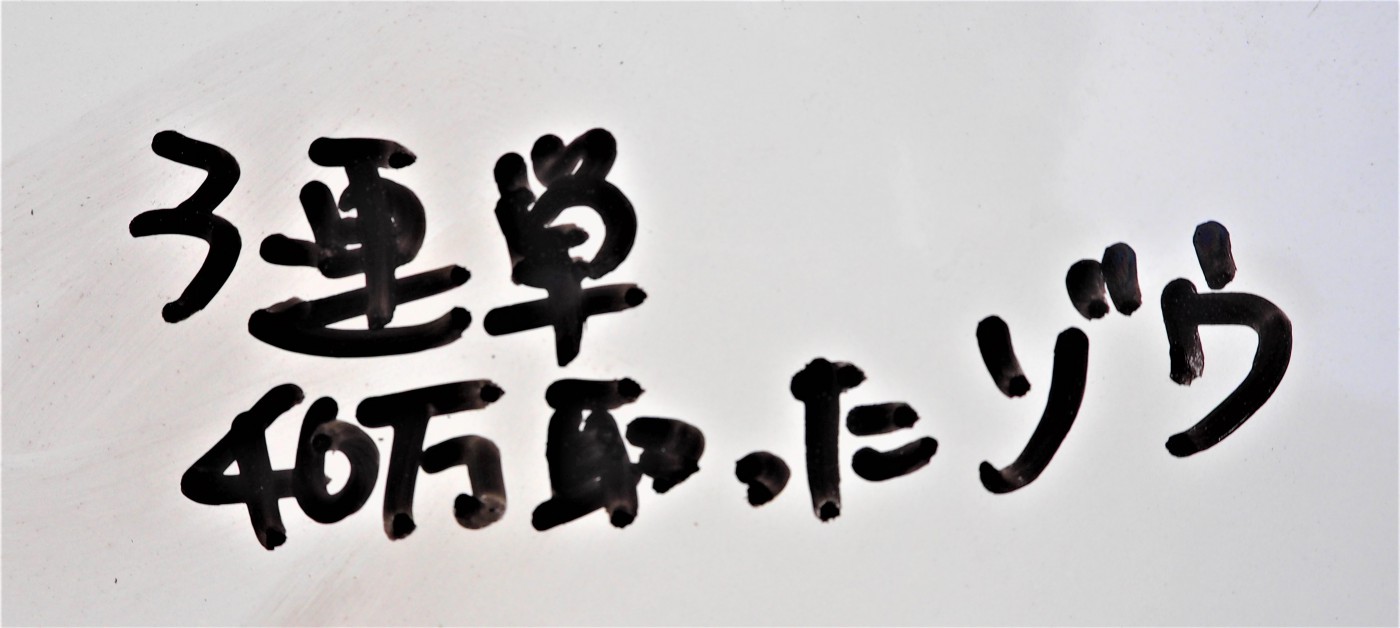 3連単
40万取ったゾウ